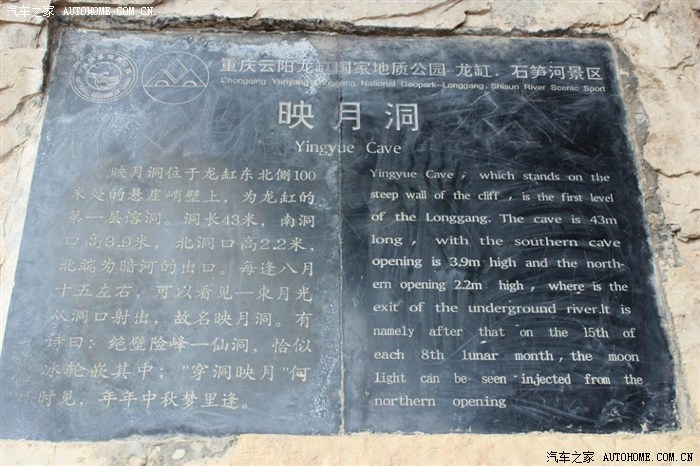 汽车之家 AUTOHOME.COM.CN
汽车之家 AUTOHOME.COM.CN
重庆云阳龙缸国家地质公园-龙缸．石笋河景区
Chongqing Yunyang Longgang National Geopark-Longgang, Shisun River Scenic Sport
映月洞
Yingyue Cave
映月洞位于龙缸东北侧100
米处的悬崖峭壁上，为龙缸的
第一层溶洞。洞长43米，南洞
口高3.9米，北洞口高2.2米，
北端为暗河的出口。每逢八月
十五左右，可以看见一束月光
从洞口射出，故名映月洞。有
诗曰：绝壁险峰一仙洞，恰似
冰轮嵌其中；"穿洞映月"何
时见，年年中秋梦里逢。
Yingyue Cave， which stands on the
steep wall of the cliff，is the first level
of the Longgang. The cave is 43m
long， with the southern cave
opening is 3.9m high and the north-
ern opening 2.2m high，where is the
exit of the underground river.It is
namely after that on the 15th of
each 8th lunar month，the moon
light can be seen injected from the
northern opening
汽车之家 AUTOHOME.COM.CN
汽车之家 AUTOHOME.COM.CN